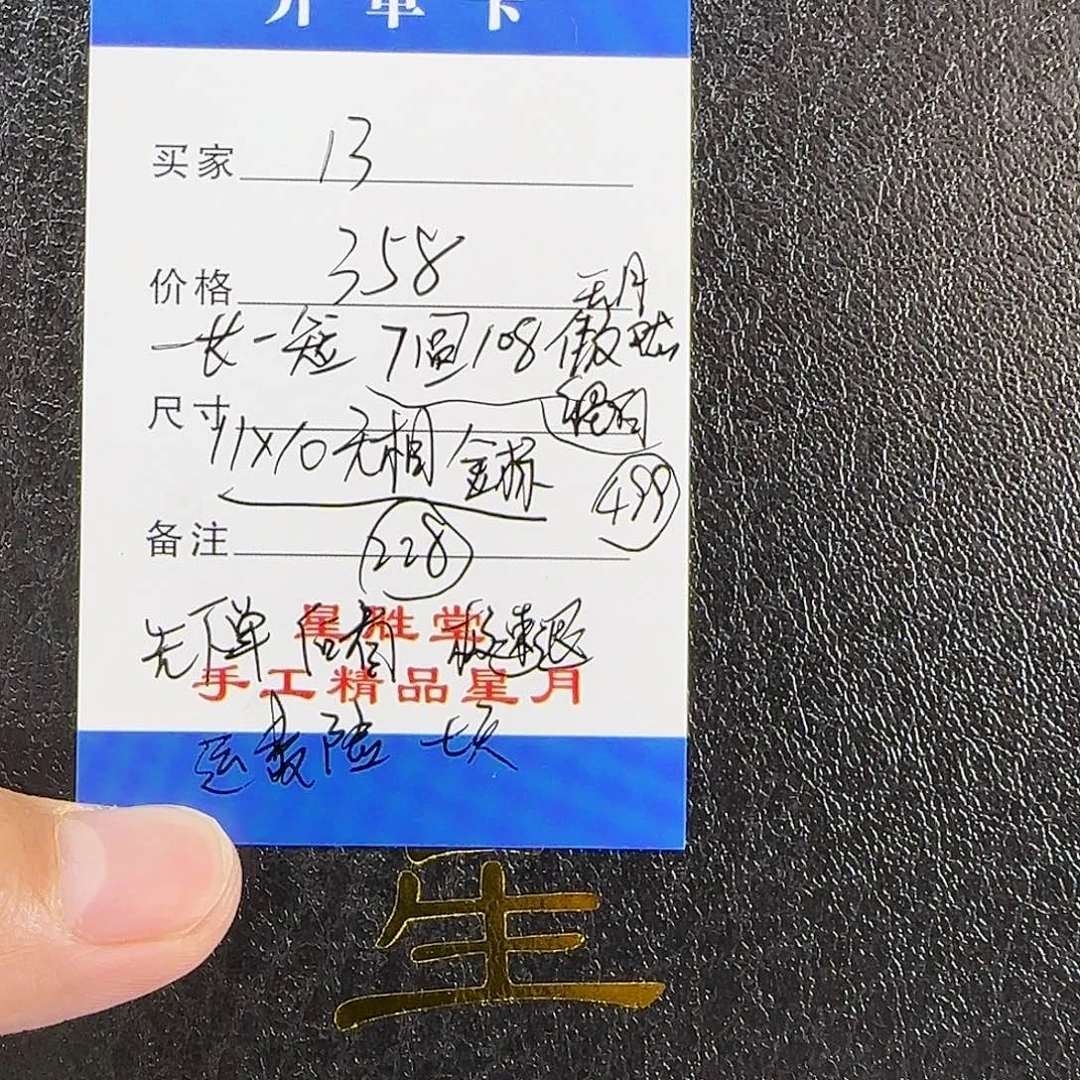 开单卡
买家 13
价格 358
天月
一长一短 7圆108
尺寸 11X10 无相
499
备注 228
先下单后看 极速退
星胜堂
手工精品星月
运费险 七天
生